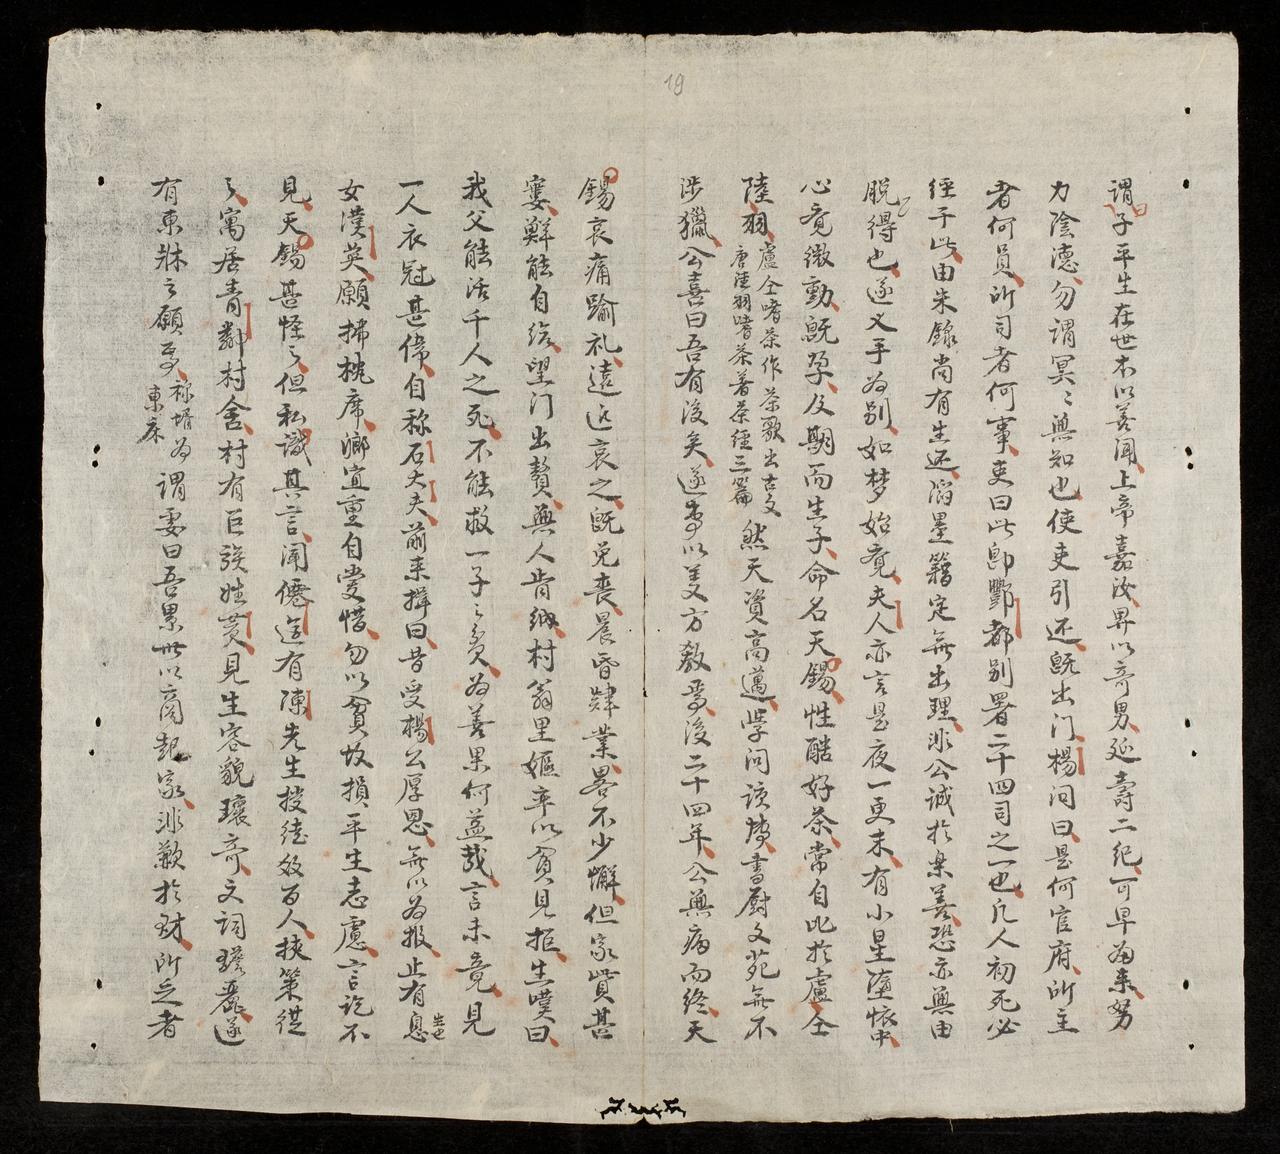 19
謂子平生在世不以善聞上帝嘉汝昇以奇男延壽二紀可早爲来努
力陰德勿謂冥〻無知也使吏引还既出门楊问曰是何官府所主
者何員所司者何事吏曰此即酆都别署二十四司之一也凡人初死必
經于此由朱錄尚有生还滔墨籍定無出理非公诚扵楽善恐亦無由
脱得也遂叉手为别如梦始竟夫人亦言是夜一更末有小星墮怀中
心竟微動既孕及期而生子命名天錫性酷好茶常自比扵盧仝
陸羽盧仝嗜茶作茶歌出古文唐陸羽嗜茶著茶經三篇然天資高邁學问该博書厨文苑無不
涉獵公喜曰吾有後矣遂專以義方敎焉後二十四年公無病而终天
錫哀痛踰礼遠近哀之既免丧晨昏肄業畧不少懈但家貲甚
窭鮮能自给望门出贅無人肯納村翁里嫗率以貧見拒生嘆曰
我父能活千人之死不能救一子之貧为善果何益哉言未竟見
一人衣冠甚偉自称石大夫前来揖曰昔受楊公厚恩無以为报止有息
女漢英願拂枕席娜宜重自爱惜勿以貧故損平生志慮言訖不
見天錫甚怪之但私識其言闻僊遊有陳先生授徒数百人挟策從
之寓居青鄰村舍村有巨族姓黄見生容貌瓌奇文词瓊麗遂
有東牀之願焉称壻为東床謂妻曰吾累世以商起家非歉扵财所乏者